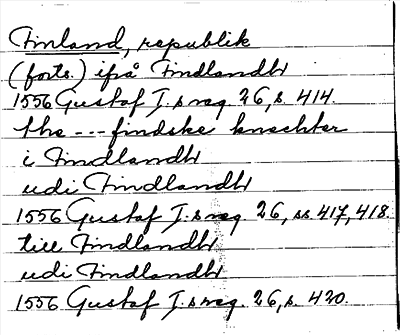 Finland, republik
(forts.) ifrå Findlandh
1556 Gustaf I:s reg. 26, s. 414.
the --- findske knechter
i Findlandh
udi Findlandh
1556 Gustaf I:s reg. 26, ss. 417, 418.
till Findlandh
udi Findlandh
1556 Gustaf I:s reg. 26, s. 420.